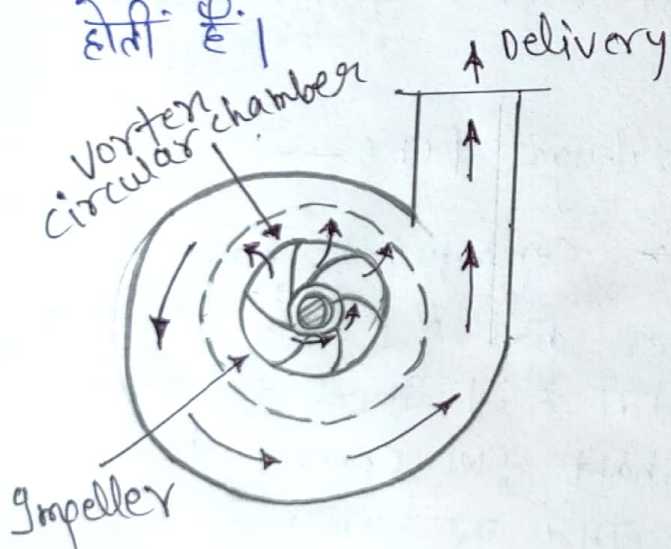 होती हैं।
Delivery
Vortex
circular chamber
Impeller